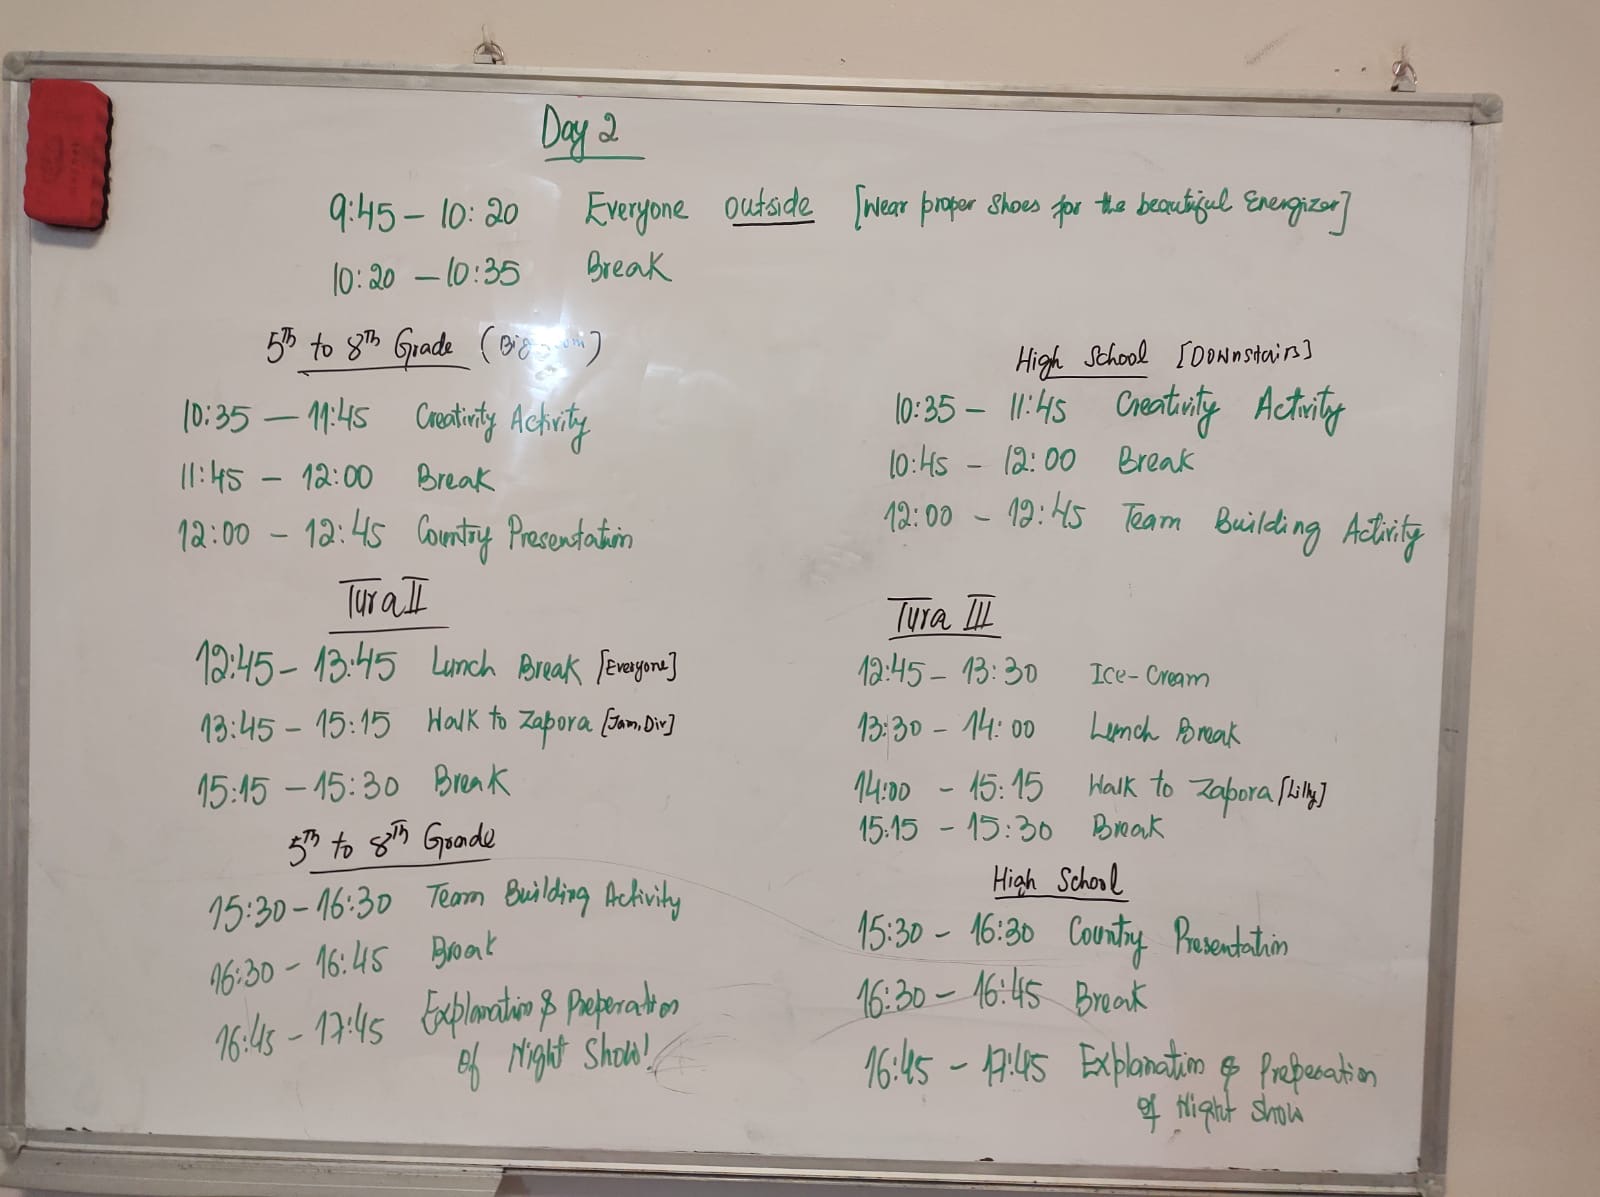 Day 2
9:45 – 10:20 Everyone outside [Wear proper shoes for the beautiful Energizer]
10:20 – 10:35 Break
5Th to 8Th Grade (Big
10:35 – 11:45 Creativity Activity
11:45 – 12:00 Break
12:00 – 12:45 Country Presentation
Tura II
12:45 – 13:45 Lunch Break [Everyone]
13:45 – 15:15 Walk to Zapora [Jam, Div]
15:15 – 15:30 Break
5Th to 8Th Grade
15:30 – 16:30 Team Building Activity
16:30 – 16:45 Break
16:45 – 17:45 Explanation & Preperation
of Night Show!
High School [Downstairs]
10:35 – 11:45 Creativity Activity
10:45 – 12:00 Break
12:00 – 12:45 Team Building Activity
Tura III
12:45 – 13:30 Ice-Cream
13:30 – 14:00 Lunch Break
14:00 – 15:15 Walk to Zapora [Lilly]
15:15 – 15:30 Break
High School
15:30 – 16:30 Country Presentation
16:30 – 16:45 Break
16:45 – 17:45 Explanation & Preperation
of Night Show